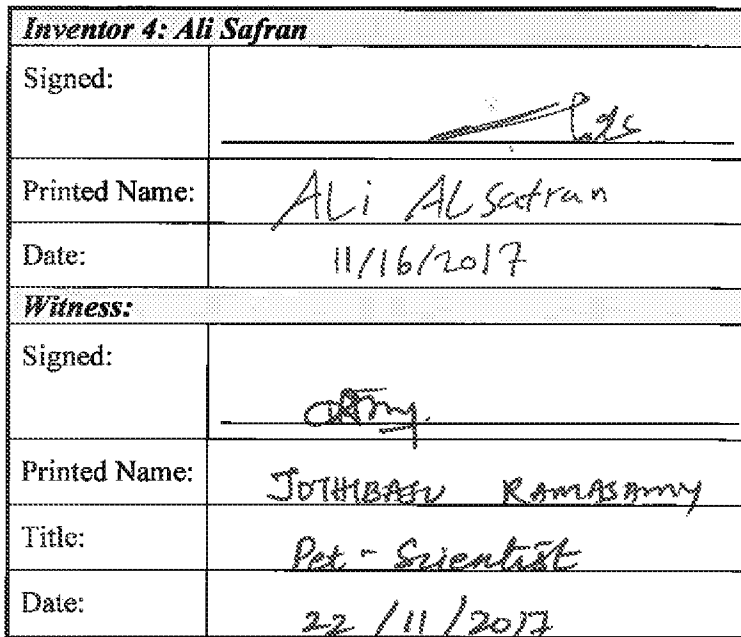 Inventor 4: Ali Safran
Signed:
Printed Name: ALi ALSafran
Date: 11/16/2017
Witness:
Signed:
Printed Name: JOTHIBASU RAMASAMY
Title: Pet - Scientist
Date: 22 /11 /2017